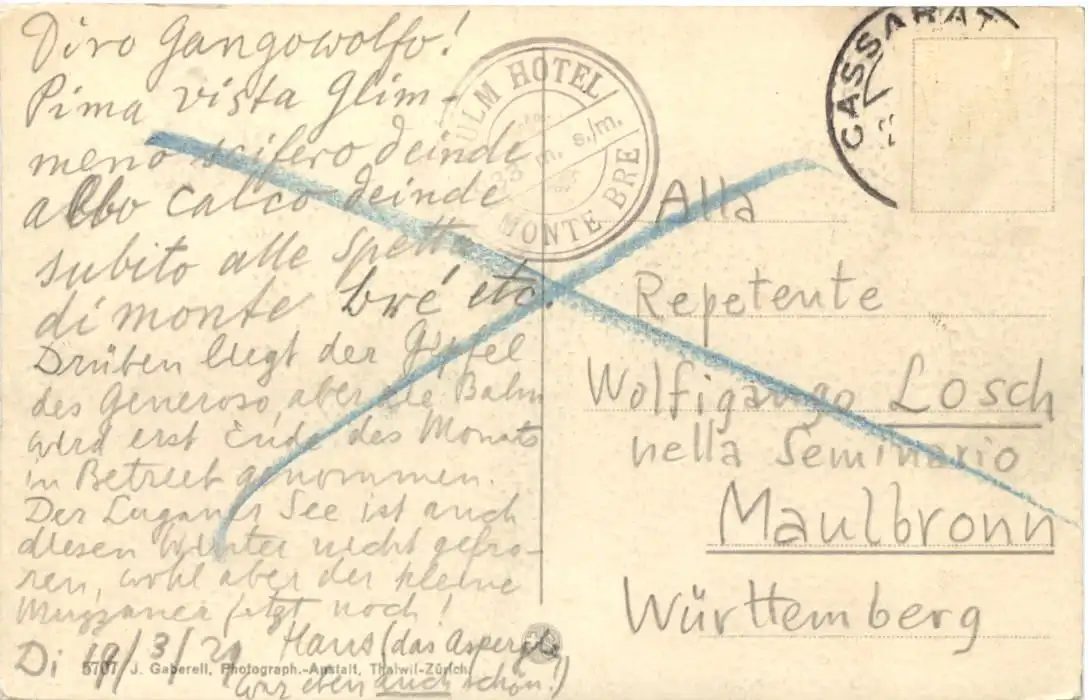 Divo Gangowolfo!
Pima vista Glim-
meno scifero deinde
albo calco deinde
subito alle
di monte bré etc.
Drüben liegt der Gipfel
des Generoso, aber die Bahn
wird erst Ende des Monats
in Betrieb genommen.
Der Luganer See ist auch
diesen Winter nicht gefro-
ren, wohl aber der kleine
Muzzaner jetzt noch!
Di 19/3/ Hans (das
war eben auch schön!)
5707 J. Gaberell, Photograph.-Anstalt, Thalwil-Zürich.
KULM HOTEL
m. s/m.
MONTE BRE
CASSARAT
Alla
Repetente
Wolfigango Losch
nella Seminario
Maulbronn
Württemberg